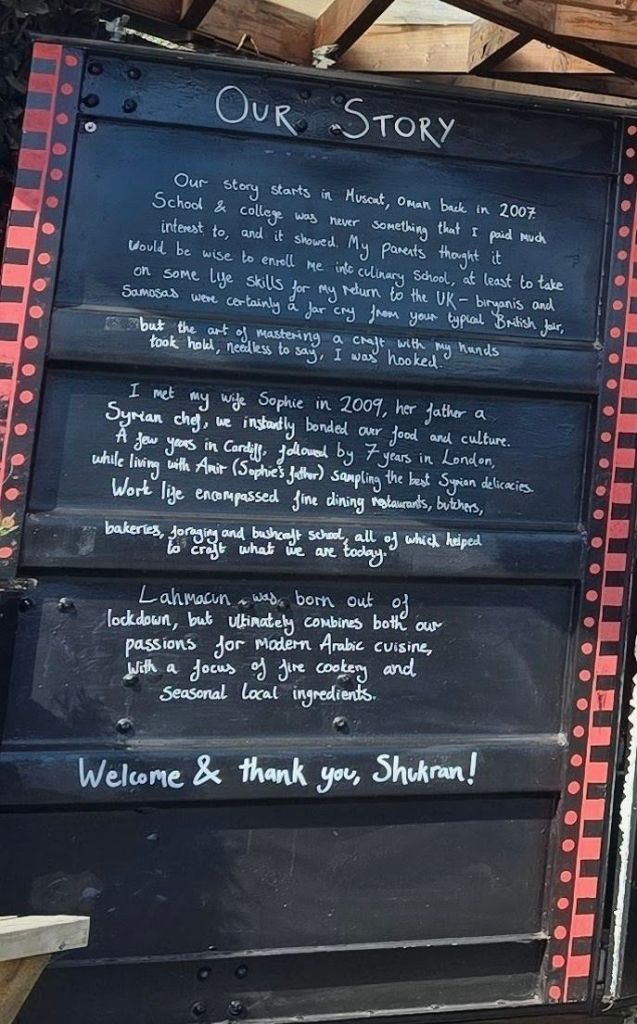 OUR STORY
Our story starts in Muscat, Oman back in 2007
School & college was never something that I paid much
interest to, and it showed. My Parents thought it
would be wise to enroll me into culinary School, at least to take
on some life skills for my return to the UK - biryanis and
Samosas were certainly a far cry from your typical British fair,
but the art of mastering a craft with my hands
took hold, needless to say, I was hooked.
I met my wife Sophie in 2009, her father a
Syrian chef, we instantly bonded our food and culture.
A few years in Cardiff, followed by 7 years in London,
while living with Amir (Sophie's father) sampling the best Syrian delicacies.
Work life encompassed fine dining restaurants, butchers,
bakeries, foraging and bushcraft school, all of which helped
to craft what we are today.
Lahmacun was born out of
lockdown, but ultimately combines both our
passions for modern Arabic cuisine,
with a focus of fire cookery and
seasonal local ingredients.
Welcome & thank you, Shukran!